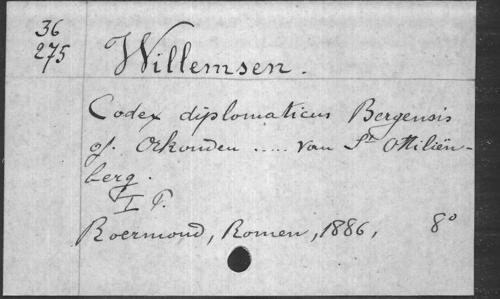 36
275
Willemsen.
Codex diplomaticus Bergensis
of. Orkonden ..... van St Ottiliën-
berg.
I P.
Roermond, Romen, 1886, 8°